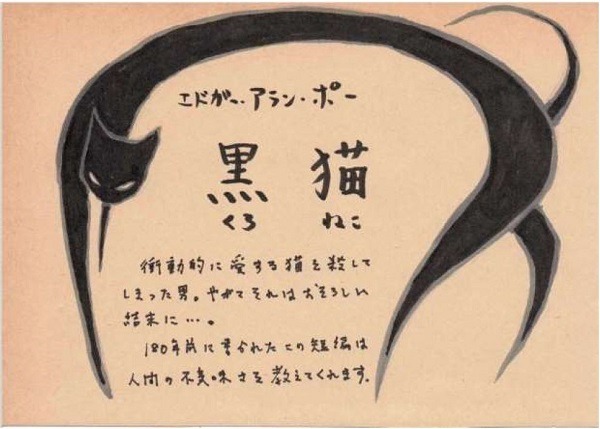 エドガー・アラン・ポー
黒猫
くろねこ
衝動的に愛する猫を殺して
しまった男。やがてそれはおそろしい
結末に…。
180年前に書かれたこの短編は
人間の不気味さを教えてくれます。